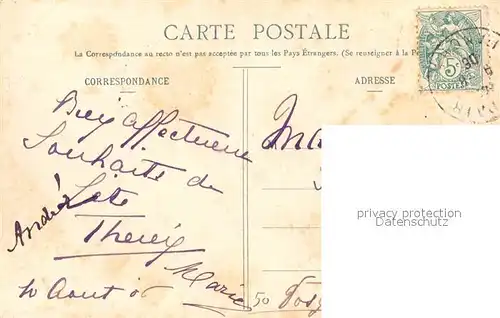 CARTE POSTALE
La Correspondance au recto n'est pas acceptée par tous les Pays Étrangers. (Se renseigner à la P
CORRESPONDANCE
ADRESSE
5
POSTES
affectueux
Souhaits de
fête
André
Marie
10 Aout 06
Ma
50
privacy protection
Datenschutz